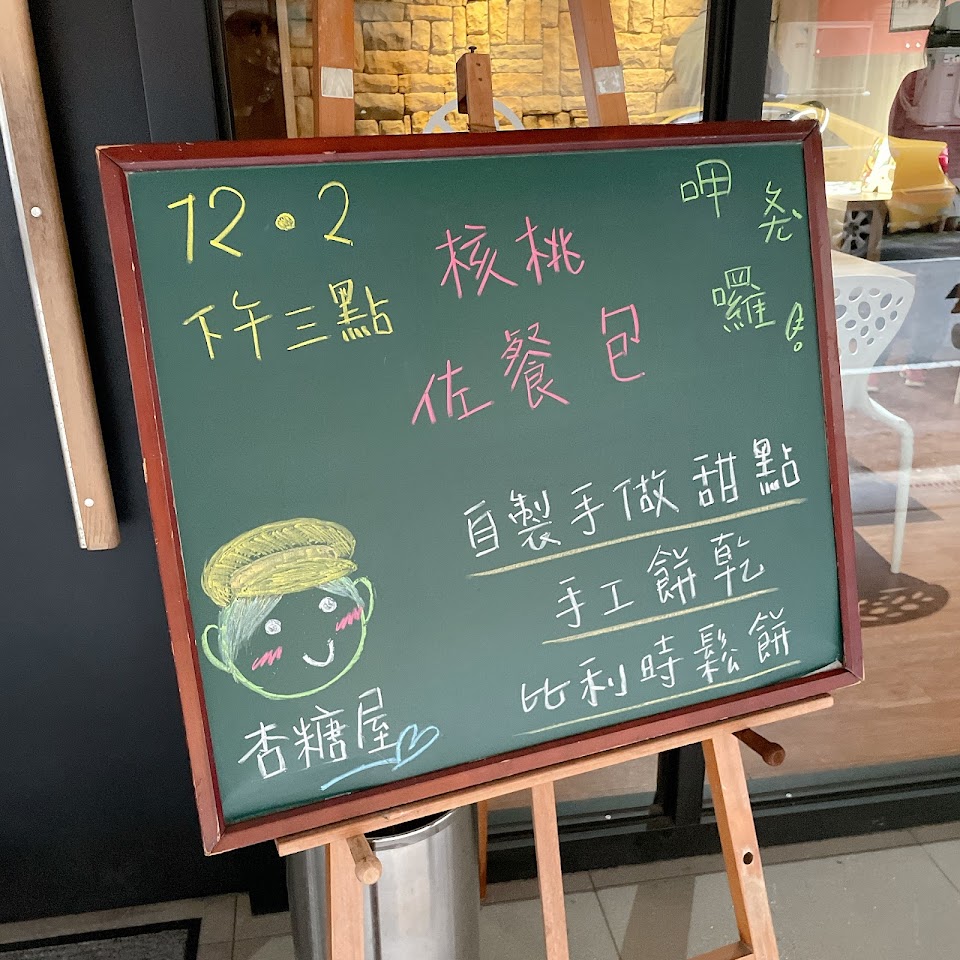 12.2
下午三點
核桃
佐餐包
呷
囉!
自製手做甜點
手工餅乾
比利時鬆餅
杏糖屋